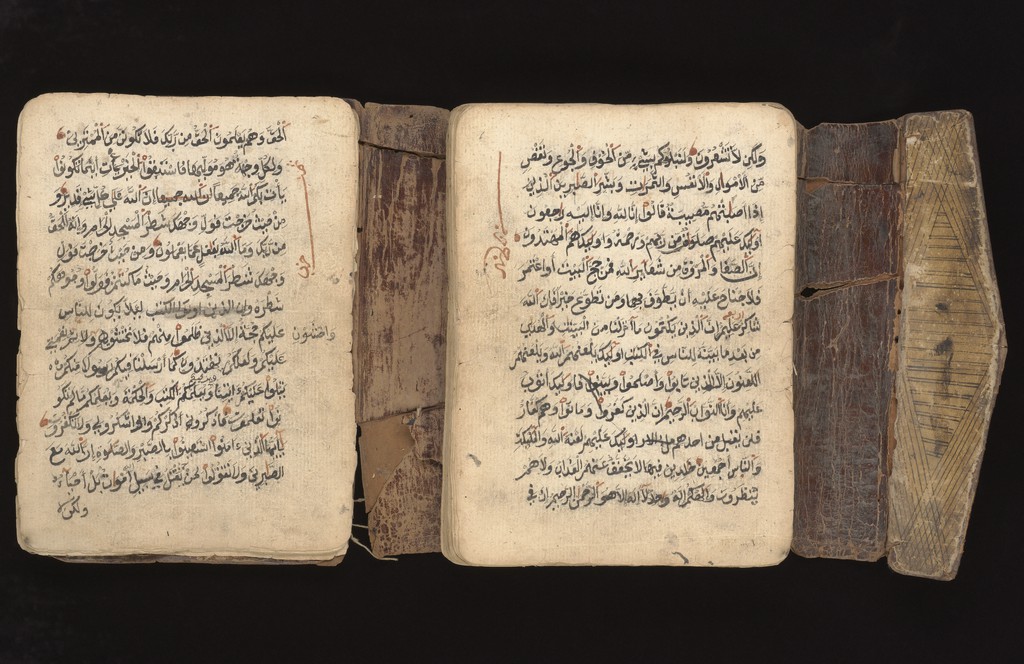 الحق وهم يعلمون الحق من ربك فلا تكونن من الممترين
ولكل وجهة هو موليها فاستبقوا الخيرات اينما تكونوا
يات بكم الله جميعا ان الله على كل شيء قدير و
من حيث خرجت فول وجهك شطر المسجد الحرام وانه للحق
من ربك وما الله بغافل عما تعملون ومن حيث خرجت فول
وجهك شطر المسجد الحرام وحيث ما كنتم فولوا وجوهكم
شطره وان الذين اوتوا الكتب لئلا يكون للناس
عليكم حجة الا الذين ظلموا منهم فلا تخشوهم ولاتم نعمتي
واخشوني
عليكم ولعلكم تهتدون كما ارسلنا فيكم رسولا منكم
يتلوا عليكم ءايتنا ويعلمكم الكتب والحكمة ويعلمكم ما لم تكو
نوا تعلمون فاذكروني اذكركم واشكروا لي ولا تكفرون
يايها الذين ءامنوا استعينوا بالصبر والصلوة ان الله مع
الصبرين ولا تقولوا لمن يقتل في سبيل اموات بل احياء
ولكن
ولكن لا تشعرون ولنبلونكم بشيء من الخوف والجوع ونقص
من الاموال والانفس والثمرات وبشر الصبرين الذين
اذا اصابتهم مصيبة قالوا انا لله وانا اليه راجعون
اوليك عليهم صلوات من ربهم ورحمة واوليك هم المهتدون
ان الصفا والمروة من شعاير الله فمن حج البيت او اعتمر
فلا جناح عليه ان يطوف بهما ومن تطوع خيرا فان الله
شاكر عليم ان الذين يكتمون ما انزلنا من البينت والهدى
من بعد ما بينه للناس في الكتب اوليك يلعنهم الله ويلعنهم
اللعنون الا الذين تابوا واصلحوا وبينوا فاوليك اتوب
عليهم وانا التواب الرحيم ان الذين كفروا وماتوا وهم كفار
فلن يقبل من احدهم اوليك عليهم لعنة الله والمليكة
والناس اجمعين خلدين فيها لا يخفف عنهم العذاب ولا هم
ينظرون والهكم اله وحد لا اله الا هو الرحمن الرحيم ان في